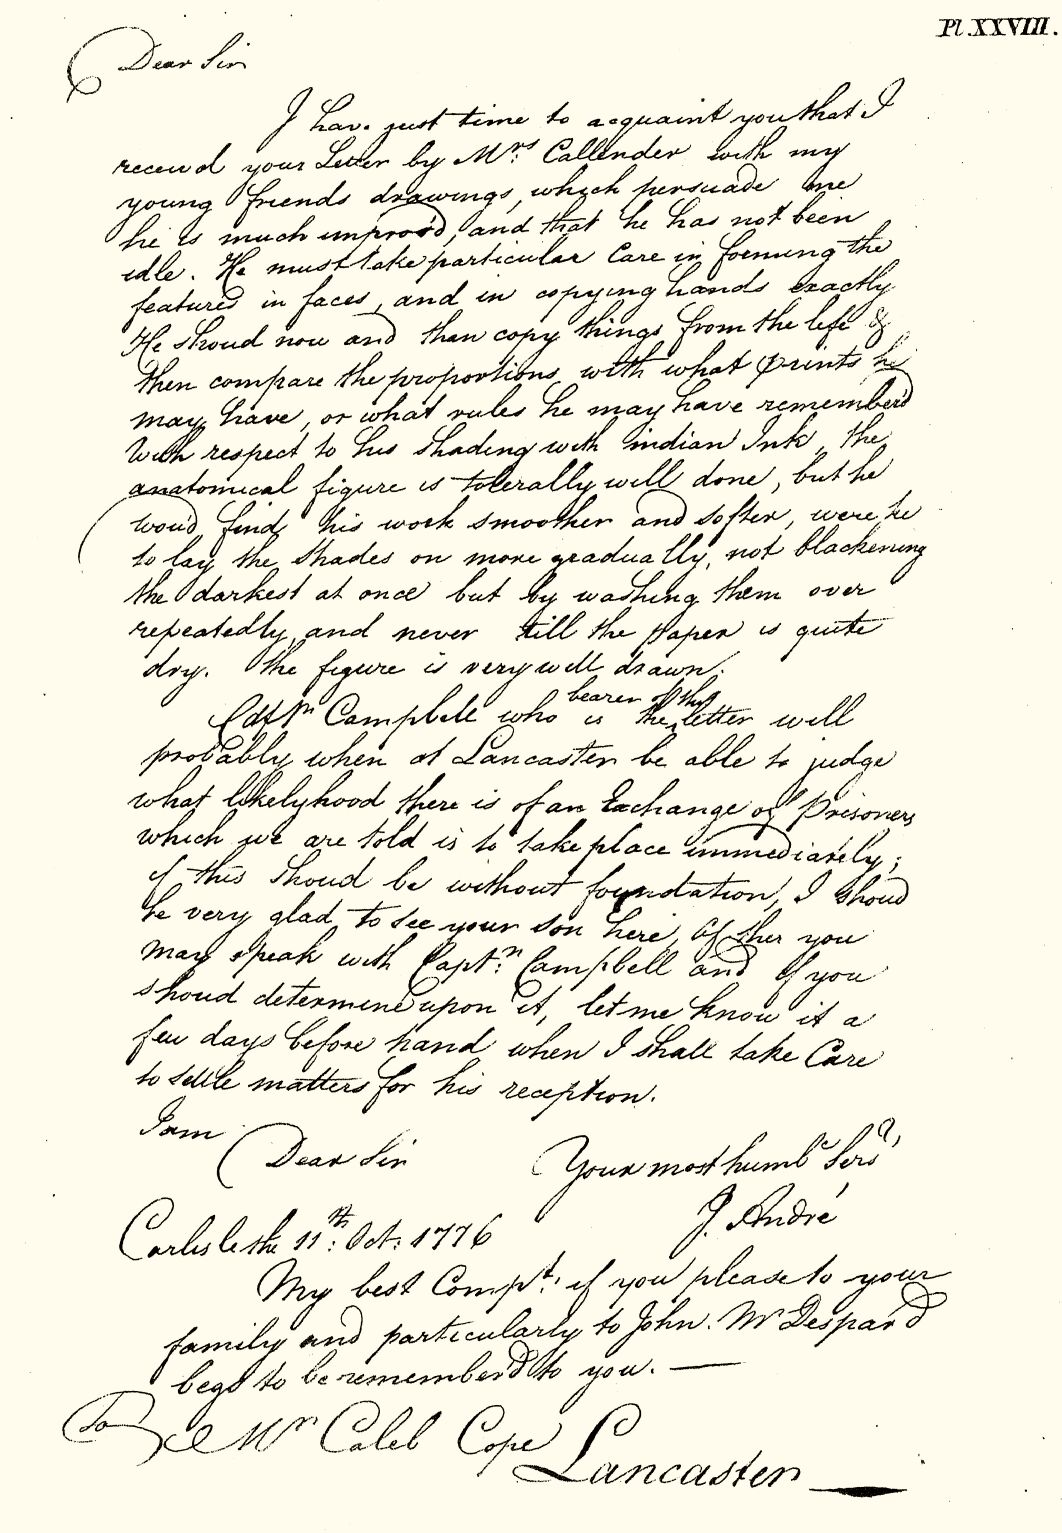 Pl. XXVIII.
Dear Sir
I have just time to acquaint you that I
receiv'd your Letter by Mrs. Callender with my
young friends drawings, which persuade me
he is much improv'd, and that he has not been
idle. He must take particular Care in forming the
features in faces, and in copying hands exactly
He shoud now and then copy things from the life &
then compare the proportions with what prints he
may have, or what rules he may have remember'd
With respect to his shading with indian Ink, the
anatomical figure is tolerally well done, but he
wou'd find his work smoother and softer, were he
to lay the Shades on more gradually, not blackening
the darkest at once but by washing them over
repeatedly, and never till the paper is quite
dry. The figure is very well drawn.
bearer of this
Captn Campbell who is the letter will
probably when at Lancaster be able to judge
what likelyhood there is of an Exchange of Prisoners
which we are told is to take place immediately;
if this shoud be without foundation, I shoud
be very glad to see your son here, Of this you
may speak with Captn. Campbell and if you
shoud determine upon it, let me know it a
few days before hand when I shall take Care
to settle matters for his reception.
I am
Dear Sir Your most humble Servt,
J. André
Carlisle the 11th: Oct: 1776
My best Compts. if you please to your
family and particularly to John. Mr Despard
begs to be remember'd to you. —
To
Mr Caleb Cope
Lancaster